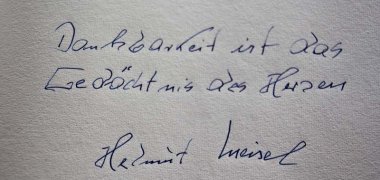 Dankbarkeit ist das
Gedächtnis des Herzen
Helmut Meisel